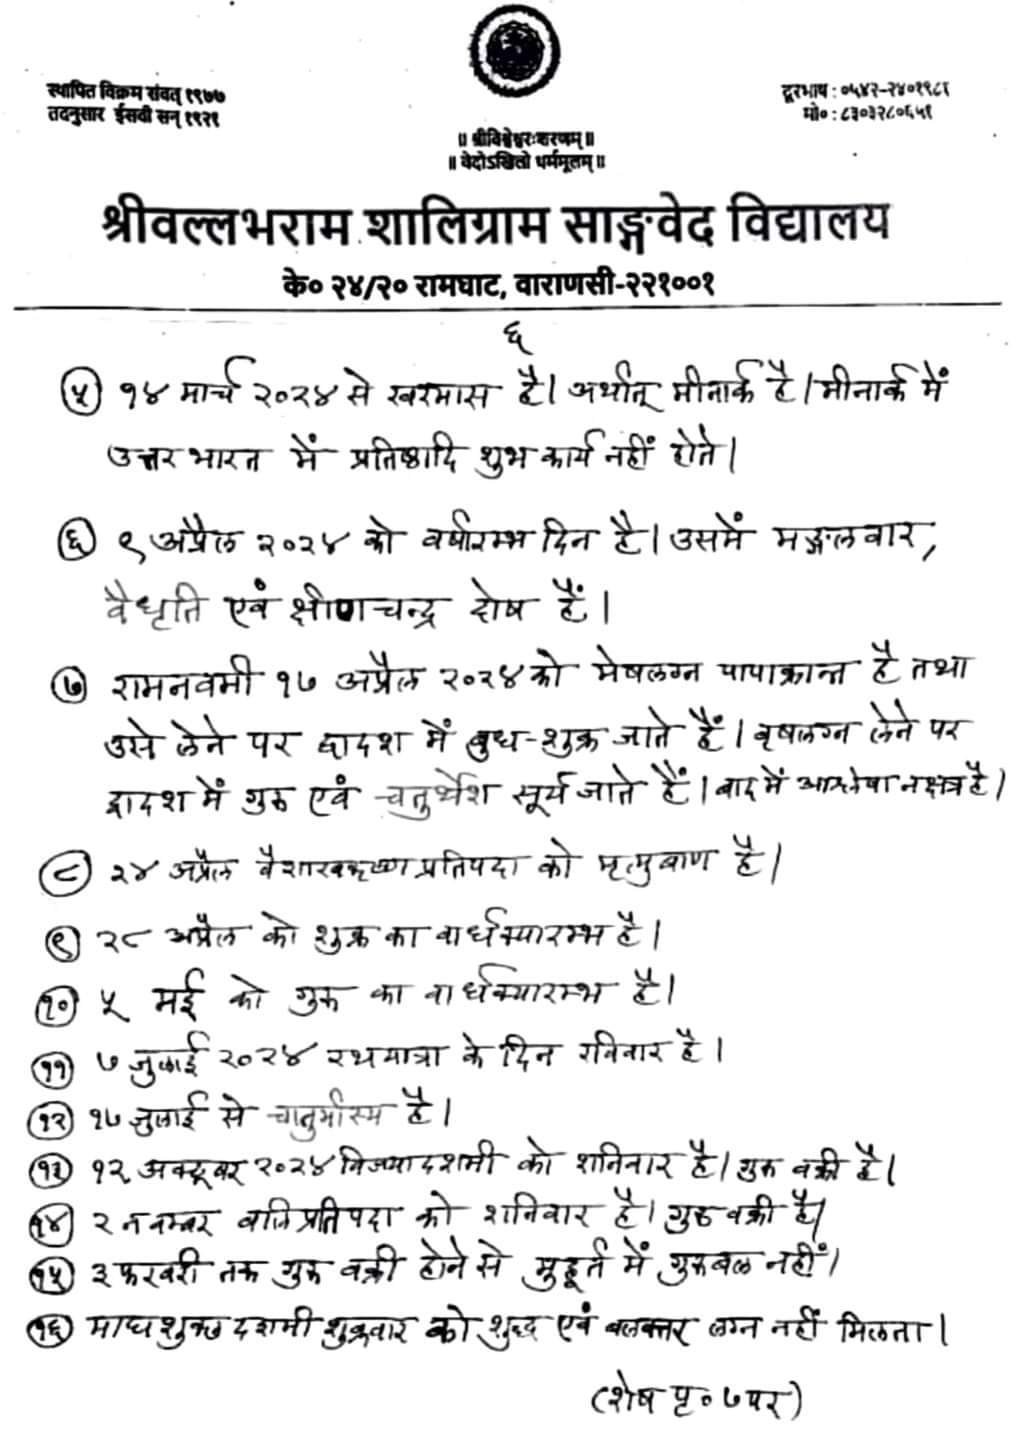 स्थापित विक्रम संवत् १९७७
तदनुसार ईसवी सन् १९२१
दूरभाष : ०५४२-२४०१९८६
मो० : ८३०३२८०६५१
॥ श्रीविश्वेश्वरःशरणम् ॥
॥ वेदोऽखिलो धर्ममूलम् ॥
श्रीवल्लभराम शालिग्राम साङ्गवेद विद्यालय
के० २४/२० रामघाट, वाराणसी-२२१००१
६
(५) १४ मार्च २०२४ से खरमास है। अर्थात् मीनार्क है। मीनार्क में
उत्तर भारत में प्रतिष्ठादि शुभ कार्य नहीं होते।
(६) ९ अप्रैल २०२४ को वर्षारम्भ दिन है। उसमें मङ्गलवार,
वैधृति एवं क्षीणचन्द्र दोष हैं।
(७) रामनवमी १७ अप्रैल २०२४ को मेषलग्न पापाक्रान्त है तथा
उसे लेने पर द्वादश में बुध-शुक्र जाते हैं। वृषलग्न लेने पर
द्वादश में गुरु एवं चतुर्थेश सूर्य जाते हैं। बाद में आश्लेषा नक्षत्र है।
(८) २४ अप्रैल वैशाखकृष्ण प्रतिपदा को मृत्युबाण है।
(९) २८ अप्रैल को शुक्र का वार्धक्यारम्भ है।
(१०) ५ मई को गुरु का वार्धक्यारम्भ है।
(११) ७ जुलाई २०२४ रथयात्रा के दिन रविवार है।
(१२) १७ जुलाई से चातुर्मास्य है।
(१३) १२ अक्टूबर २०२४ विजयादशमी को शनिवार है। गुरु वक्री है।
(१४) २ नवम्बर बलिप्रतिपदा को शनिवार है। गुरु वक्री है।
(१५) ३ फरवरी तक गुरु वक्री होने से मुहूर्त में गुरुबल नहीं।
(१६) माघ शुक्ल दशमी शुक्रवार को शुद्ध एवं बलवत्तर लग्न नहीं मिलता।
(शेष पृ० ७ पर)